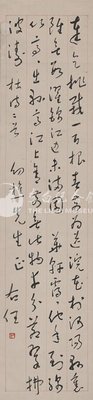 奉乞桃栽一百根春前為送浣花村河陽縣裏
雖無數濯錦江邊未滿園 華軒靄靄他年到綿
竹亭亭出縣高江上舍前無此物幸分蒼翠拂
波濤 杜詩二首 先生正 右任